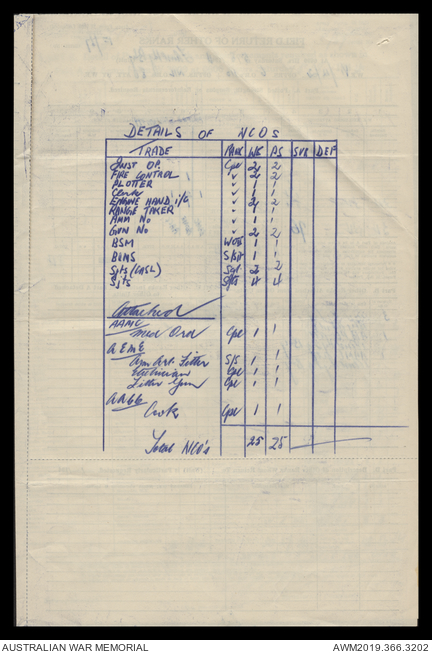 DETAILS OF NCOS
TRADE RANK WE PS SUR DEF
INST OP. Cpl 2 2
FIRE CONTROL " 2 2
PLOTTER " 1 1
Clerk " 1 1
ENGINE HAND i/c " 2 2
RANGE TAKER " 1 1
AMM No " 1 1
GUN No " 2 2
BSM WOII 1 1
BQMS S/Sgt 1 1
Sjts (CASL) Sgt 2 2
Sjts 4 4
Attached
AAMC
Med Ord Cpl 1 1
AEME
Arm Art Fitter S/S 1 1
Cpl 1 1
Fitter Gun Cpl 1 1
Cook Cpl 1 1
Total NCO's 25 25
AUSTRALIAN WAR MEMORIAL
AWM2019.366.3202